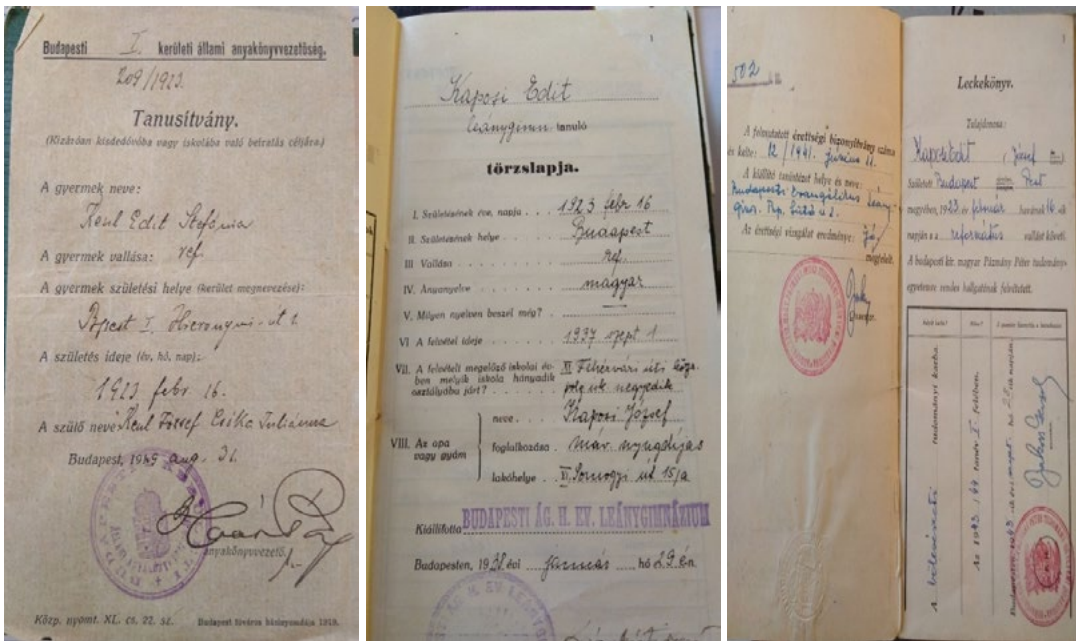 Budapesti I. kerületi állami anyakönyvvezetőség.
209/1923.
Tanusítvány.
(Kizáróan kisdedóvóba vagy iskolába való beiratás céljára.)
A gyermek neve:
Keul Edit Stefánia
A gyermek vallása: ref.
A gyermek születési helye (kerület megnevezése):
Bpest I. Hieronymi-út 1
A születés ideje (év, hó, nap):
1923 febr 16.
A szülő neve: Keul József Csika Juliánna
Budapest, 19 aug. 31.
anyakönyvvezető.
Közp. nyomt. XL. cs. 22. sz. Budapest főváros házinyomdája 1919.
1
Kaposi Edit
leánygimn. tanuló
törzslapja.
I. Születésének éve, napja 1923 febr 16
II. Születésének helye Budapest
III Vallása ref.
IV. Anyanyelve magyar
V. Milyen nyelven beszél még? —
VI A felvétel ideje 1937 szept 1
VII. A felvételt megelőző iskolai év-
ben melyik iskola hányadik
osztályába járt? XI Fehérvári úti közs.
polg. isk negyedik
VIII. Az apa
vagy gyám
neve Kaposi József
foglalkozása máv. nyugdíjas
lakóhelye XI. Somogyi út 15/a
Kiállította BUDAPESTI ÁG. H. EV. LEÁNYGIMNÁZIUM
Budapesten, 1938 évi január hó 29 én.
502
A felmutatott érettségi bizonyítvány száma
és kelte: 12/1941. június 11.
A kiállító tanintézet helye és neve:
Budapesti Evangélikus Leány-
gimn. Bp.
Az érettségi vizsgálat eredménye: jó
megfelelt.
Quaestor.
1
Leckekönyv.
Tulajdonosa:
Kaposi Edit, József
Született Budapest Pest
megyében, 1923 év február havának 16. -ik
napján s a református vallást követi.
A budapesti kir. magyar Pázmány Péter tudomány-
egyetemre rendes hallgatónak felvétetett.
A bölcsészeti tudományi karba.
Az 1943/44 tanév I. felében.